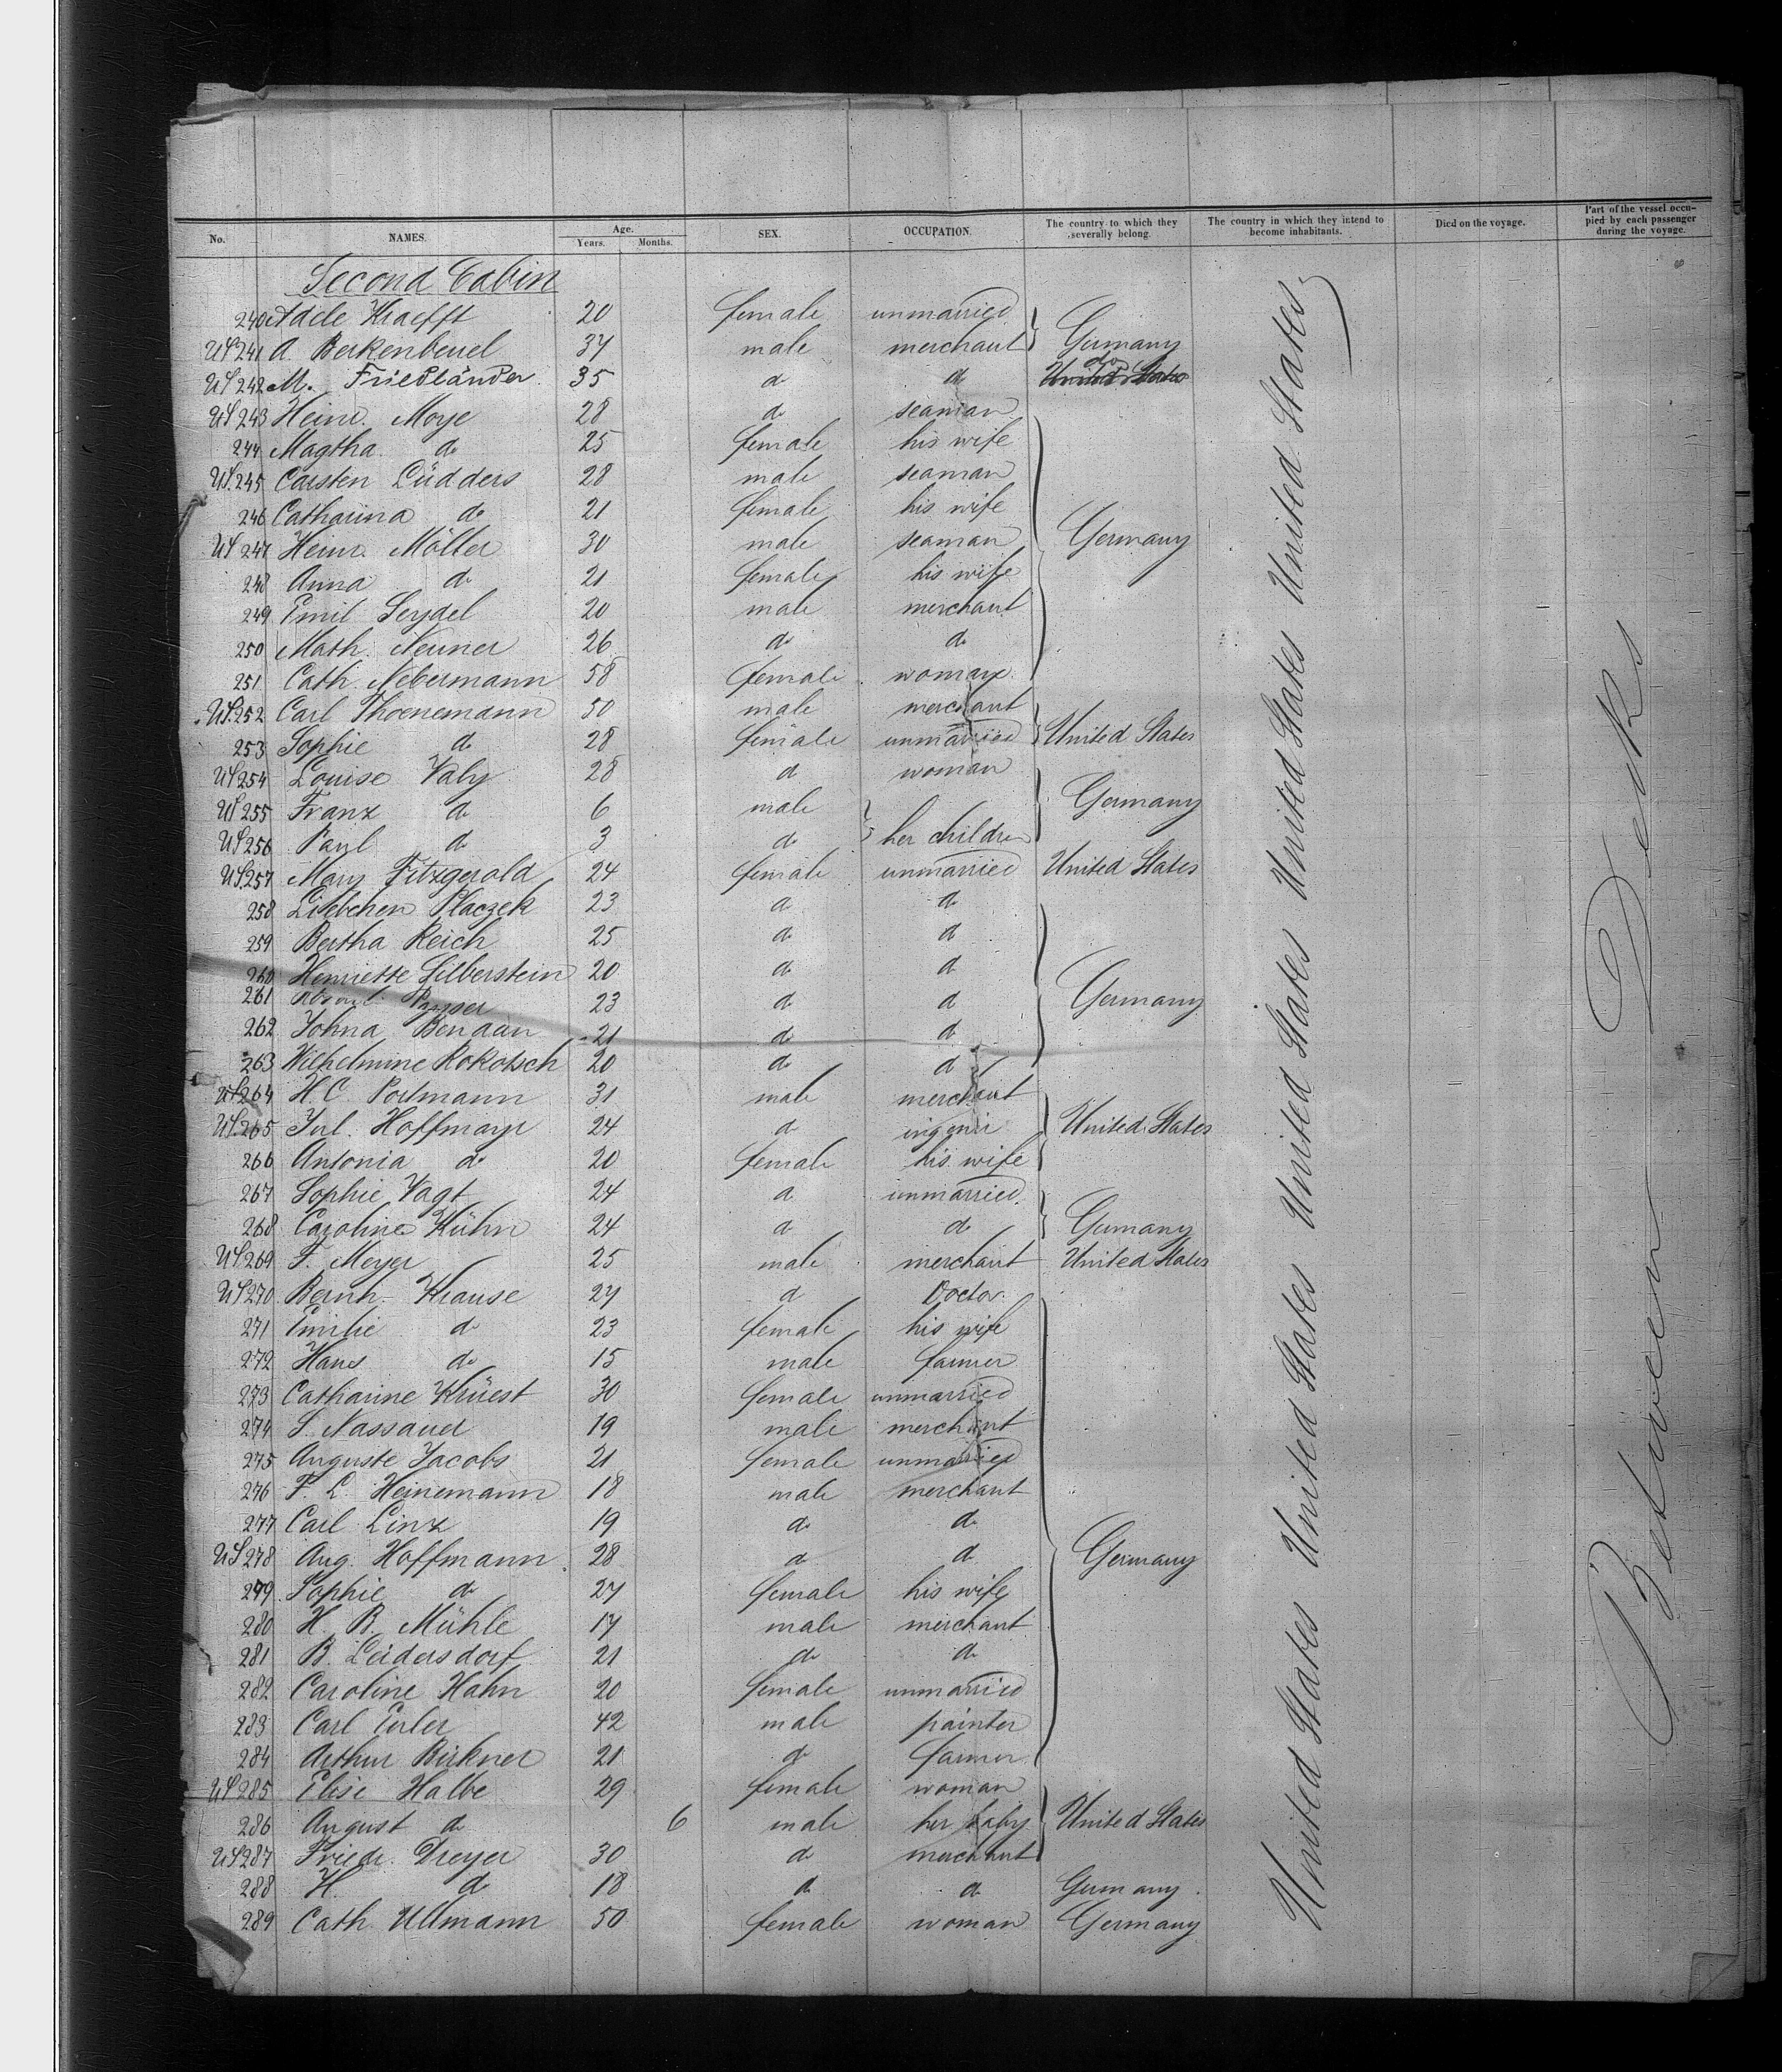 No. NAMES. Age. Years. Months. SEX. OCCUPATION. The country to which they severally belong. The country in which they intend to become inhabitants. Died on the voyage. Part of the vessel occupied by each passenger during the voyage.
Second Cabin
240 Adele Kraefft 20 female unmarried
US 241 A. Berkenbeuel 37 male merchant Germany
US 242 M. Friedländer 35 do do do United States
US 243 Heinr. Moye 28 do seaman
244 Magtha do 25 female his wife
US 245 Carsten Lüdders 28 male seaman
246 Catharina do 21 female his wife
US 247 Heinr. Möller 30 male seaman Germany
248 Anna do 21 female his wife
249 Emil Seydel 20 male merchant
250 Math. Neuner 26 do do
251 Cath. Nebermann 58 female woman
US 252 Carl Thoenemann 50 male merchant
253 Sophie do 28 female unmarried United States
US 254 Louise Valy 28 do woman
US 255 Franz do 6 male Germany
US 256 Paul do 3 do her children
US 257 Mary Fitzgerald 24 female unmarried United States
258 Liebchen Placzek 23 do do
259 Bertha Reich 25 do do
260 Henriette Silberstein 20 do do
261 23 do do Germany
262 Johna Bendan 21 do do
263 Wilhelmine Rokotsch 20 do do
US 264 H. C. Portmann 31 male merchant
US 265 Jul. Hoffmann 24 do United States
266 Antonia do 20 female his wife
267 Sophie Vagt 24 do unmarried
268 Caroline Kühn 24 do do Germany
US 269 F. Meyer 25 male merchant United States
US 270 Bernh. Krause 27 do Doctor
271 Emilie do 23 female his wife
272 Hans do 15 male farmer
273 Catharine Krüest 30 female unmarried
274 S. Nassauer 19 male merchant
275 Auguste Jacobs 21 female unmarried
276 F. L. Heinemann 18 male merchant
277 Carl Linz 19 do do
US 278 Aug. Hoffmann 28 do do Germany
279 Sophie do 27 female his wife
280 H. B. Mühle 17 male merchant
281 B. Leidersdorf 21 do do
282 Caroline Hahn 20 female unmarried
283 Carl Euler 42 male painter
284 Arthur Birkner 21 do farmer
US 285 Elise Halbe 29 female woman
286 August do 6 male her baby United States
US 287 Friedr. Dreyer 30 do merchant
288 H. do 18 do do Germany
289 Cath. Ullmann 50 female woman Germany
United States United States United States United States United States United States
Between Decks